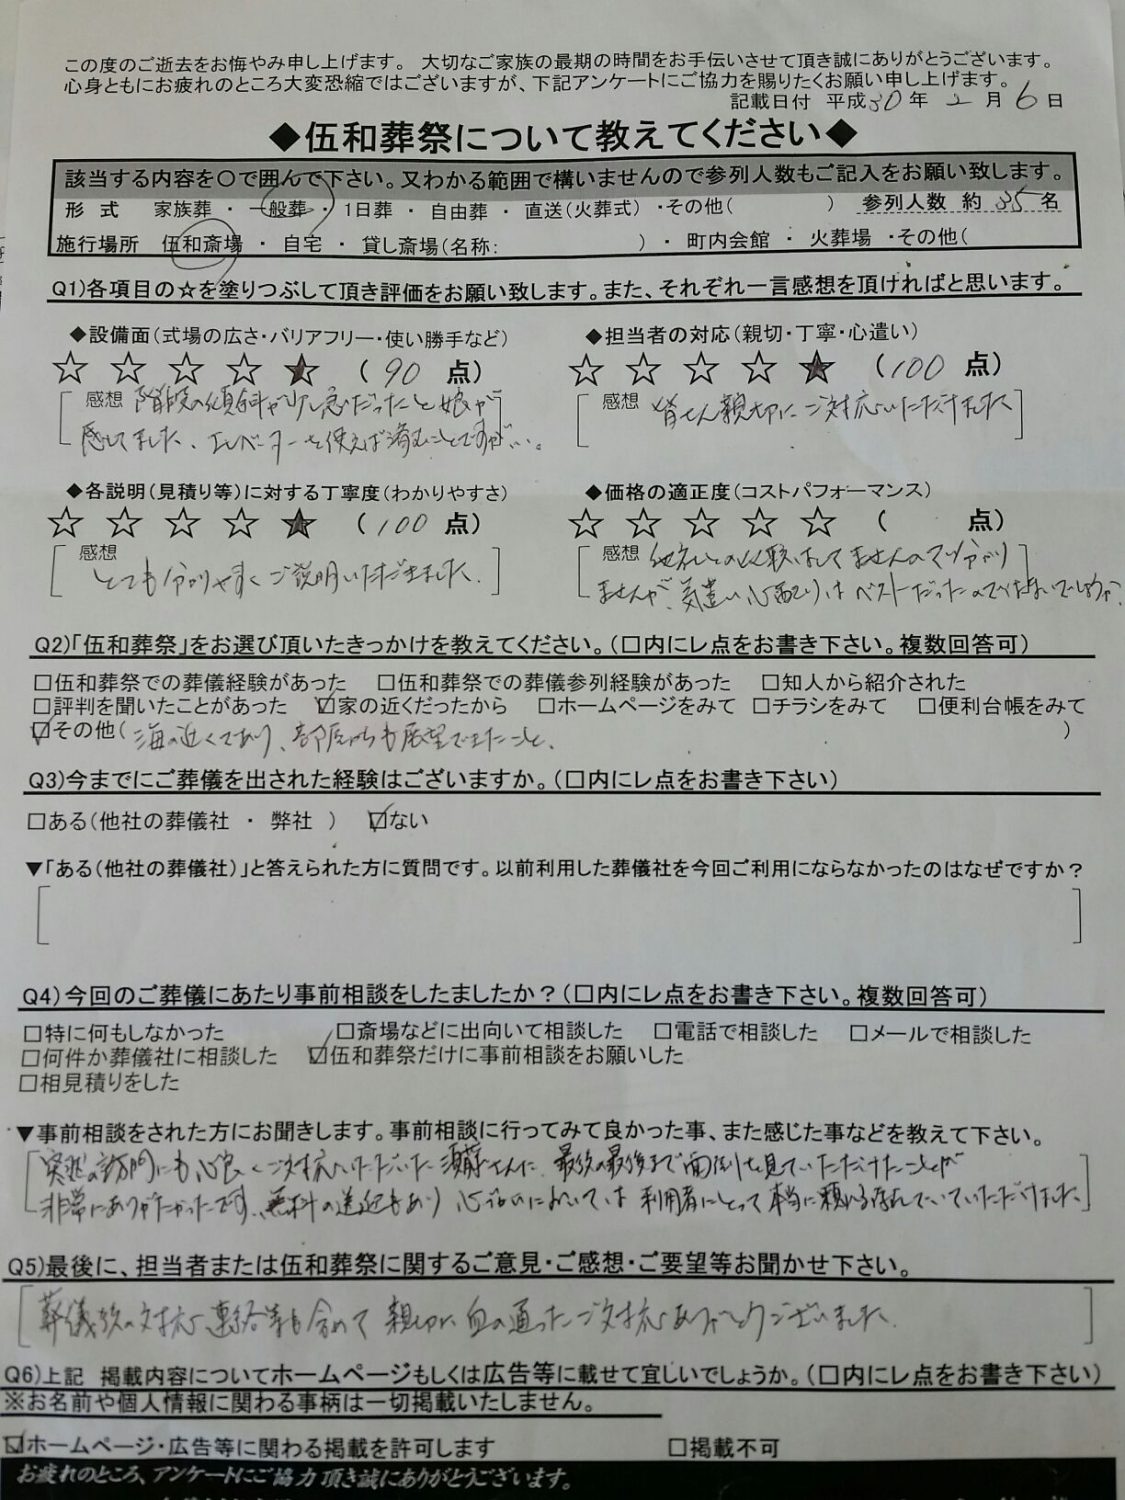 この度のご逝去をお悔やみ申し上げます。 大切なご家族の最期の時間をお手伝いさせて頂き誠にありがとうございます。
心身ともにお疲れのところ大変恐縮ではございますが、下記アンケートにご協力を賜りたくお願い申し上げます。
記載日付 平成30年 2 月 6 日
◆伍和葬祭について教えてください◆
該当する内容を〇で囲んで下さい。又わかる範囲で構いませんので参列人数もご記入をお願い致します。
形 式 家族葬 ・ 一般葬 ・ 1日葬 ・ 自由葬 ・ 直送(火葬式) ・その他( ) 参列人数 約 35 名
施行場所 伍和斎場 ・ 自宅 ・ 貸し斎場(名称: ) ・ 町内会館 ・ 火葬場 ・その他(
Q1)各項目の☆を塗りつぶして頂き評価をお願い致します。また、それぞれ一言感想を頂ければと思います。
◆設備面(式場の広さ・バリアフリー・使い勝手など)
☆ ☆ ☆ ☆ ★ ( 90 点)
感想 階段の傾斜が少し急だったと娘が
感じてました、エレベーターを使えば済むことですが…。
◆担当者の対応(親切・丁寧・心遣い)
☆ ☆ ☆ ☆ ★ (100 点)
感想 皆さん親切にご対応いただけました
◆各説明(見積り等)に対する丁寧度(わかりやすさ)
☆ ☆ ☆ ☆ ★ ( 100 点)
感想
とても分かりやすくご説明いただきました。
◆価格の適正度(コストパフォーマンス)
☆ ☆ ☆ ☆ ☆ ( 点)
感想 他社との比較はしてませんので分かり
ませんが、気遣い心配りはベストだったのではないでしょうか?
Q2)「伍和葬祭」をお選び頂いたきっかけを教えてください。(□内にレ点をお書き下さい。複数回答可)
□伍和葬祭での葬儀経験があった □伍和葬祭での葬儀参列経験があった □知人から紹介された
□評判を聞いたことがあった ☑家の近くだったから □ホームページをみて □チラシをみて □便利台帳をみて
☑その他( 海の近くであり、部屋からも展望できたこと、 )
Q3)今までにご葬儀を出された経験はございますか。(□内にレ点をお書き下さい)
□ある(他社の葬儀社 ・ 弊社 ) ☑ない
▼「ある(他社の葬儀社)」と答えられた方に質問です。以前利用した葬儀社を今回ご利用にならなかったのはなぜですか?
Q4)今回のご葬儀にあたり事前相談をしましたか?(□内にレ点をお書き下さい。複数回答可)
□特に何もしなかった □斎場などに出向いて相談した □電話で相談した □メールで相談した
□何件か葬儀社に相談した ☑伍和葬祭だけに事前相談をお願いした
□相見積りをした
▼事前相談をされた方にお聞きします。事前相談に行ってみて良かった事、また感じた事などを教えて下さい。
突然の訪問にも心良くご対応いただいた須藤さんに、最後の最後まで面倒を見ていただけたことが
非常にありがたかったです、無料の送迎もあり 心においては 利用者にとって本当に頼れる存在でいていただけました
Q5)最後に、担当者または伍和葬祭に関するご意見・ご感想・ご要望等お聞かせ下さい。
葬儀後の対応、連絡等も含めて 親切に血の通ったご対応ありがとうございました。
Q6)上記 掲載内容についてホームページもしくは広告等に載せて宜しいでしょうか。(□内にレ点をお書き下さい)
※お名前や個人情報に関わる事柄は一切掲載いたしません。
☑ホームページ・広告等に関わる掲載を許可します □掲載不可
お疲れのところ、アンケートにご協力頂き誠にありがとうございます。